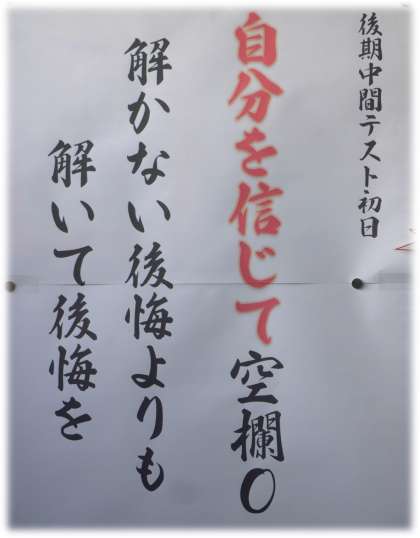 後期中間テスト初日
自分を信じて空欄0
解かない後悔よりも
解いて後悔を